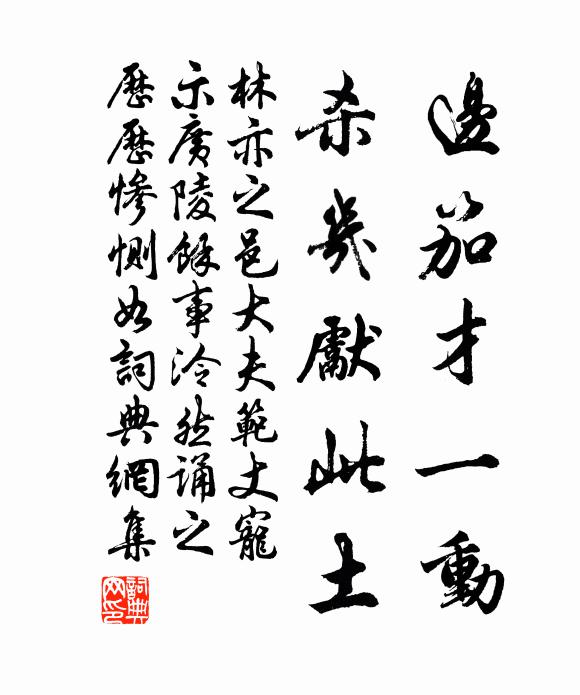 邊笳才一動
杀幾獻此土
林亦之邑大夫範丈寵
示廣陵餘事泠然誦之
歷歷慘惻如詞典網集
詞典网印